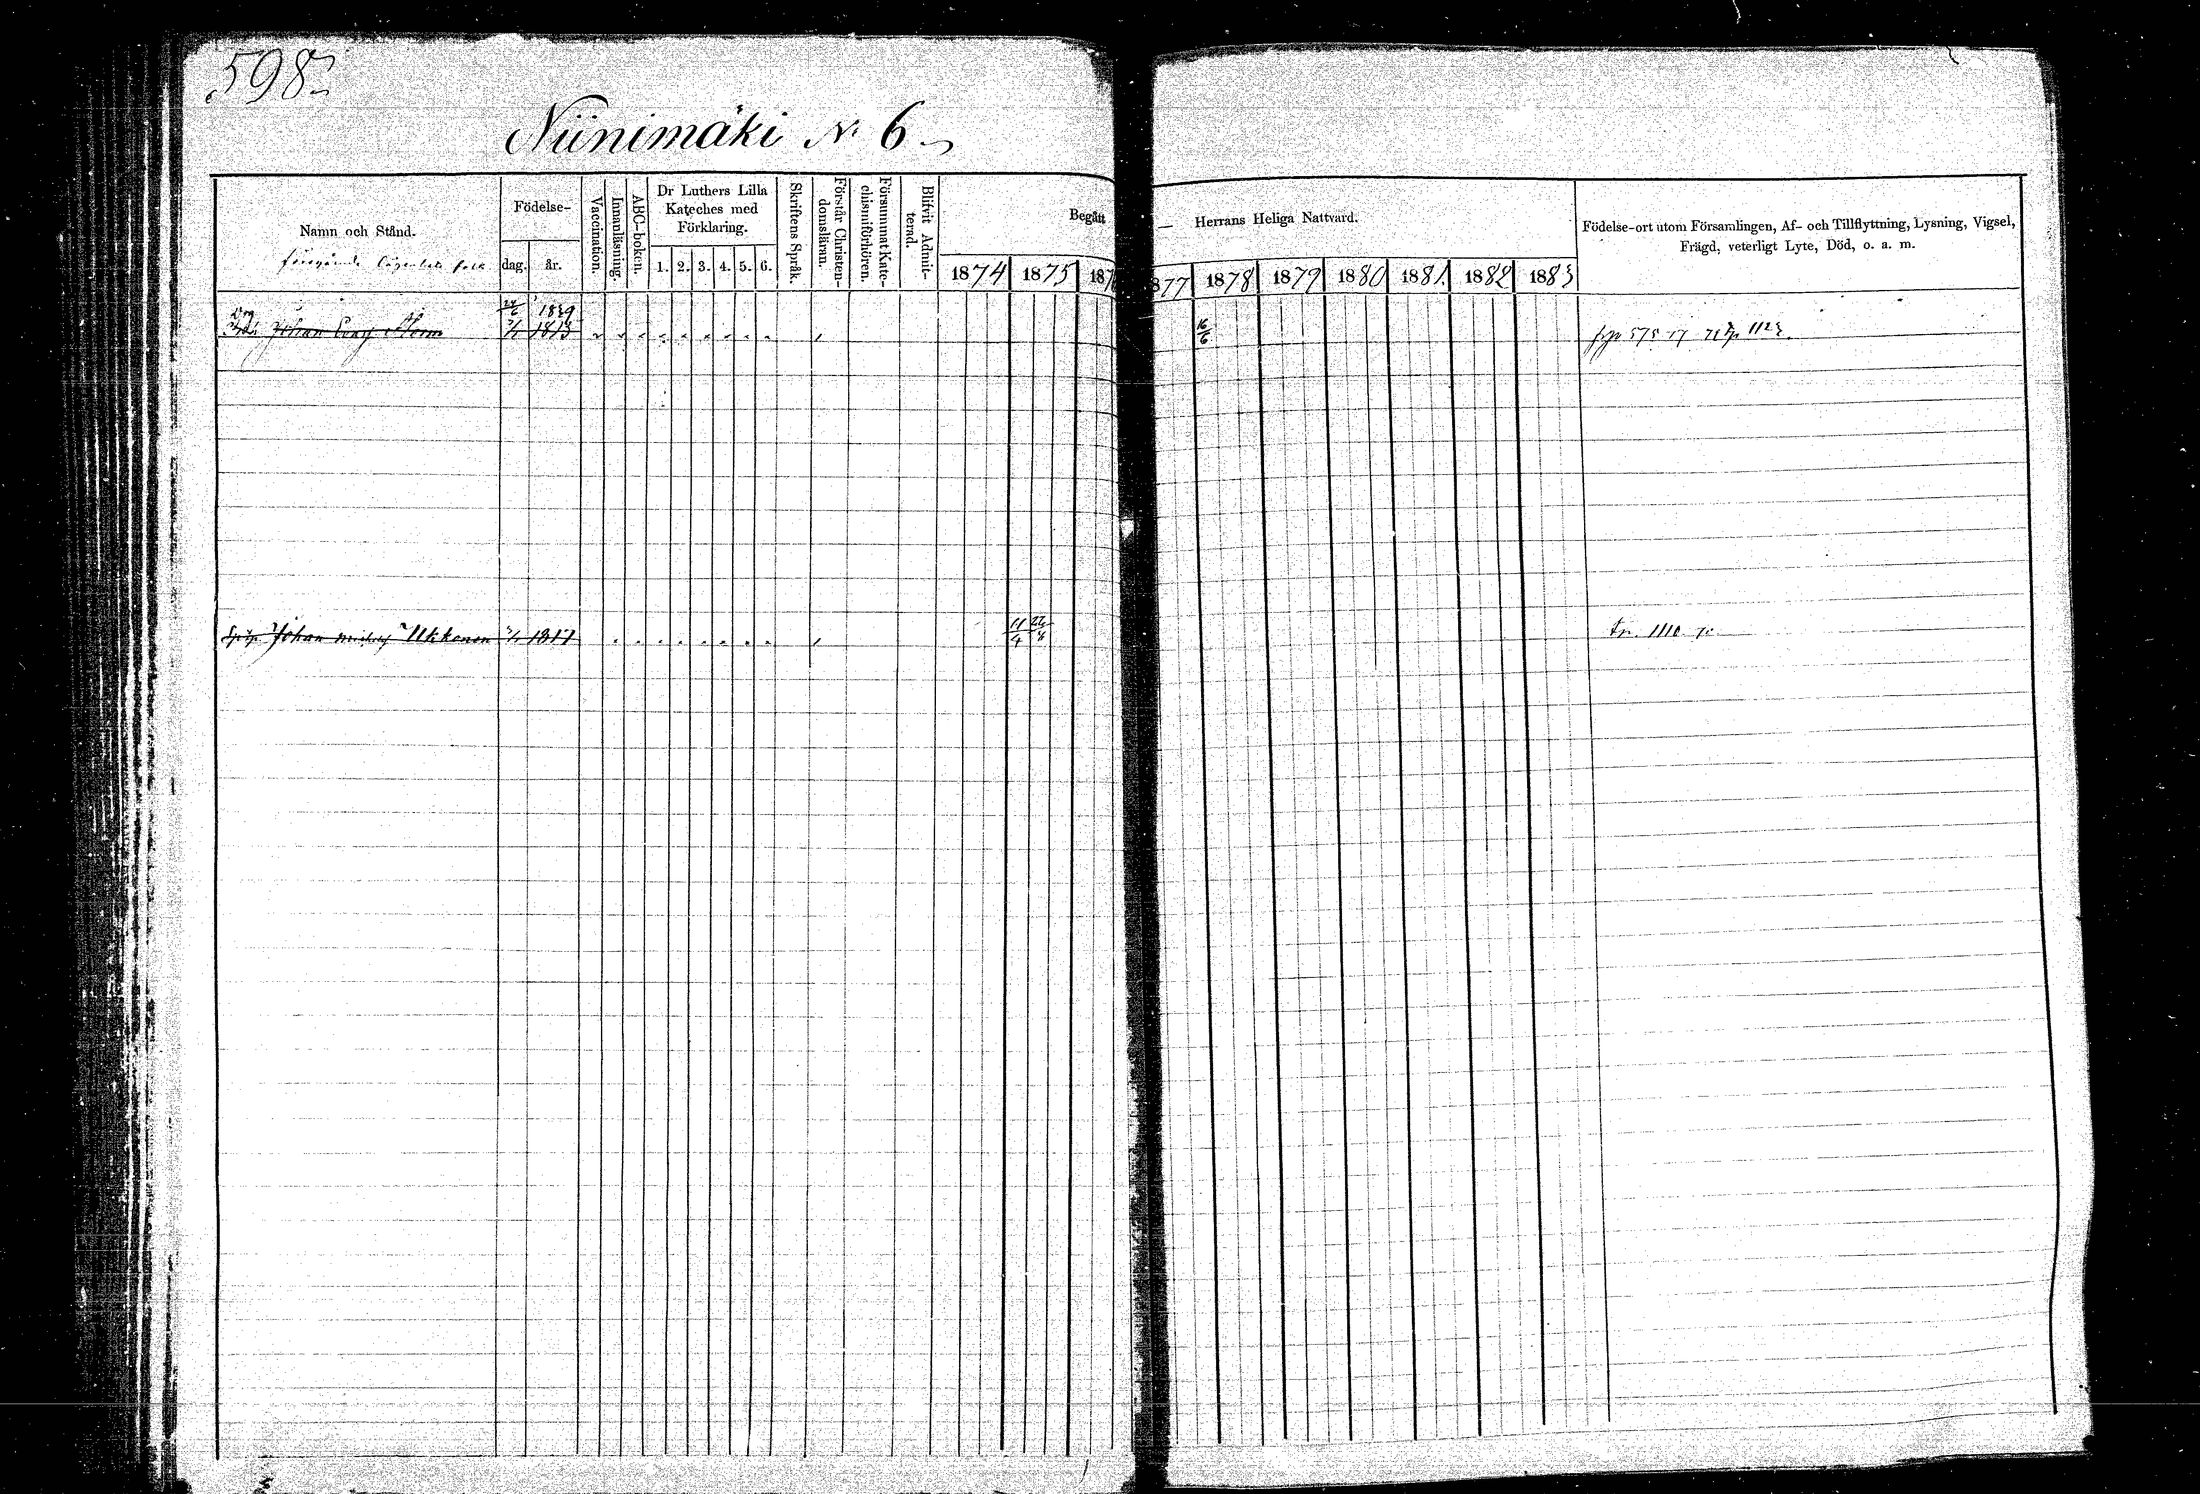 598
Niinimäki № 6
Namn och Stånd.
föregående lägenhets folk
Födelse-
dag. år.
Vaccination.
Innanläsning.
ABC-boken.
Dr Luthers Lilla
Kateches med
Förklaring.
1. 2. 3. 4. 5. 6.
Skriftens Språk.
Förstår Christen-
domsläran.
Försummat Kate-
chismiförhören.
Blifvit Admit-
terad.
Begått
1874 1875 187
— Herrans Heliga Nattvard.
1877 1878 1879 1880 1881. 1882 1883
Födelse-ort utom Församlingen, Af- och Tillflyttning, Lysning, Vigsel,
Frägd, veterligt Lyte, Död, o. a. m.
24/6 1839
Johan 1813
16/6
Johan Ukkonen 1817
11/4 22/8